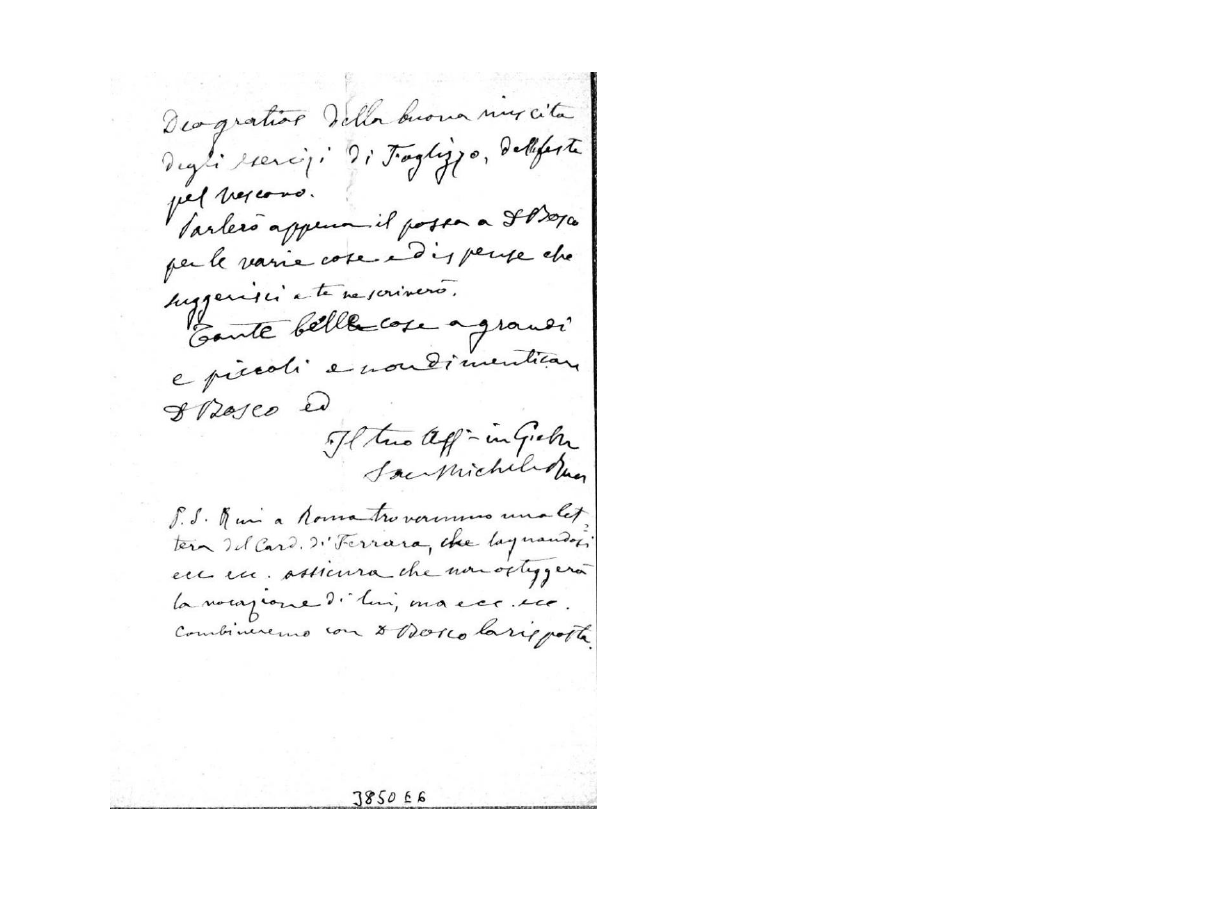 Deo gratias della buona riuscita
degli esercizi di Foglizzo, delle feste
pel Vescovo.
Parlerò appena il possa a D Bosco
per le varie cose e dispense che
suggerisci e te ne scriverò.
Tante belle cose a grandi
e piccoli e non dimenticare
D Bosco ed
Il tuo Aff in G
Sac Michele Rua
P.S. Qui a Roma trovammo una let=
tera del Card. di Ferrara, che lagnandosi
ecc ecc. assicura che non osteggerà
la vocazione di lui, ma ecc. ecc.
Combineremo con D Bosco la risposta.
3850 E6